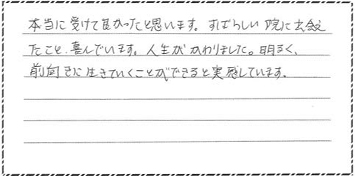 本当に受けて良かったと思います。すばらしい院に出会え
たこと、喜んでいます。人生がかわりました。明るく、
前向きに生きていくことができると実感しています。